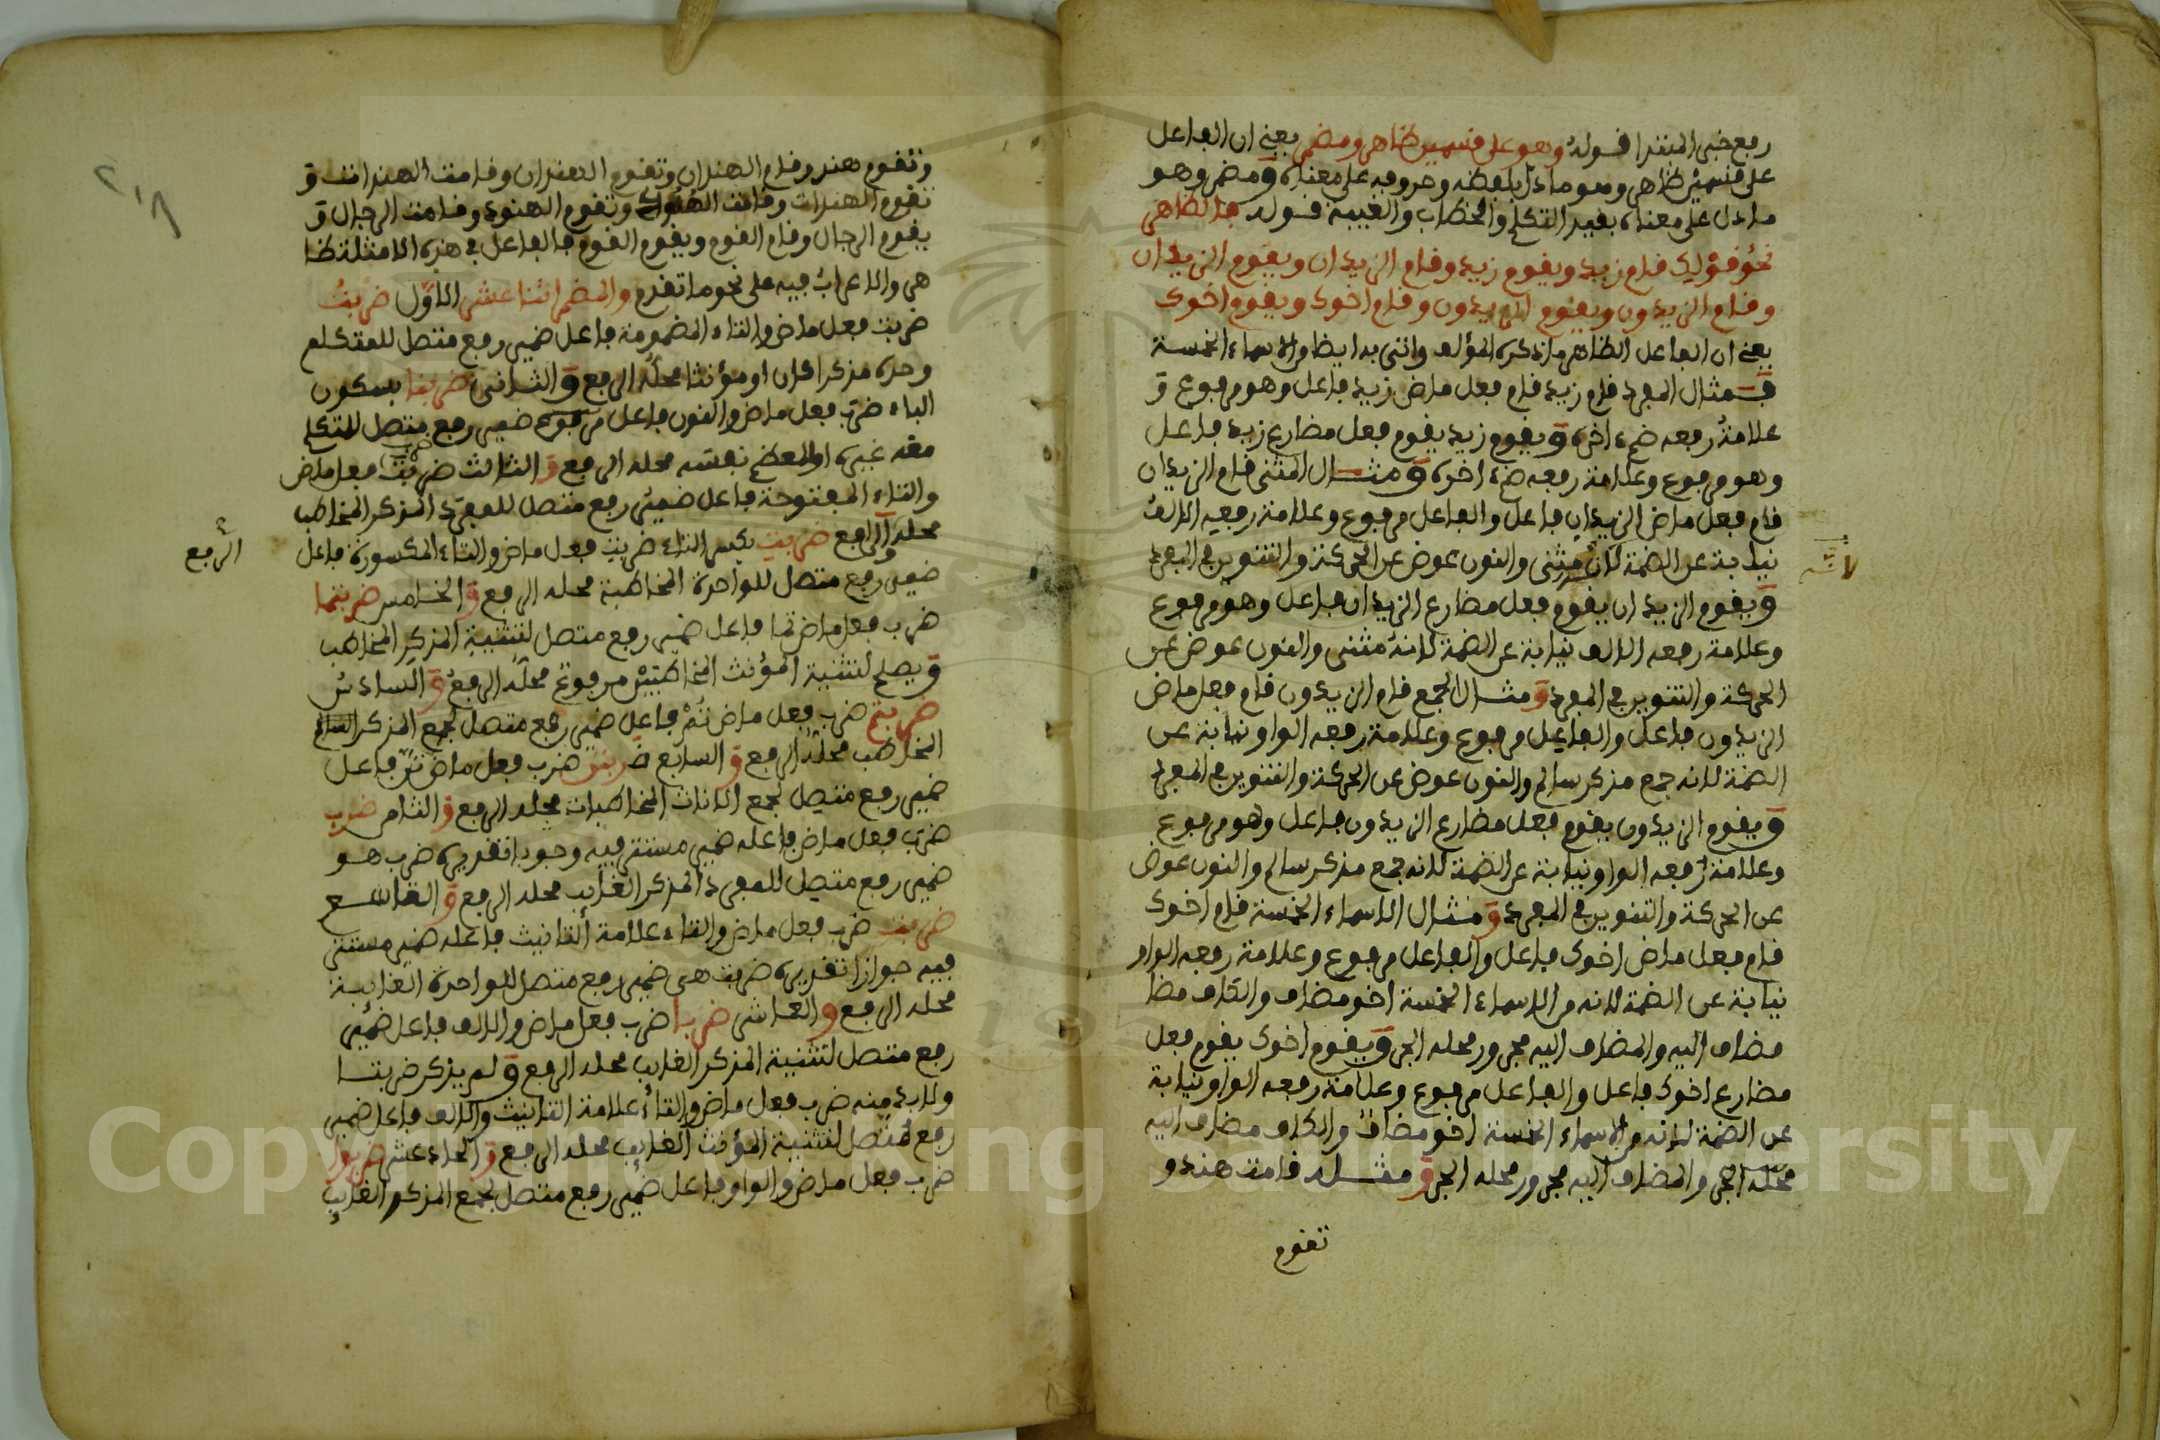 رفع خبر المبتدا قوله وهو على قسمين ظاهر ومضمر يعني ان الفاعل
على قسمين ظاهر وهو ما دل بلفظه وحروفه على معناه ومضمر وهو
ما دل على معناه بقيد التكلم والخطاب والغيبة قوله فالظاهر
نحو قولك قام زيد ويقوم زيد وقام الزيدان ويقوم الزيدان
وقام الزيدون ويقوم الزيدون وقام اخوك ويقوم اخوك
يعني ان الفاعل الظاهر ما ذكره المؤلف واتى به ايضا والاسماء الخمسة
فمثال المفرد قام زيد قام فعل ماض زيد فاعل وهو مرفوع و
علامة رفعه ضم اخره ويقوم زيد يقوم فعل مضارع زيد فاعل
وهو مرفوع وعلامة رفعه ضم اخره ومثال المثنى قام الزيدان
قام فعل ماض الزيدان فاعل والفاعل مرفوع وعلامة رفعه الالف
نيابة عن الضمة لانه مثنى والنون عوض عن الحركة والتنوين في المفرد
ويقوم الزيدان يقوم فعل مضارع الزيدان فاعل وهو مرفوع
وعلامة رفعه الالف نيابة عن الضمة لانه مثنى والنون عوض عن
الحركة والتنوين في المفرد ومثال الجمع قام الزيدون قام فعل ماض
الزيدون فاعل والفاعل مرفوع وعلامة رفعه الواو نيابة عن
الضمة لانه جمع مذكر سالم والنون عوض عن الحركة والتنوين في المفرد
ويقوم الزيدون يقوم فعل مضارع الزيدون فاعل وهو مرفوع
وعلامة رفعه الواو نيابة عن الضمة لانه جمع مذكر سالم والنون عوض
عن الحركة والتنوين في المفرد ومثال الاسماء الخمسة قام اخوك
قام فعل ماض اخوك فاعل والفاعل مرفوع وعلامة رفعه الواو
نيابة عن الضمة لانه من الاسماء الخمسة اخو مضاف والكاف مضا
مضاف اليه والمضاف اليه مجرور محله الجر ويقوم اخوك يقوم فعل
مضارع اخوك فاعل والفاعل مرفوع وعلامة رفعه الواو نيابة
عن الضمة لانه من الاسماء الخمسة اخو مضاف والكاف مضاف اليه
محله الجر والمضاف اليه مجرور محله الجر ومثله قامت هند و
تقوم
وتقوم هند وقام الهندان وتقوم الهندان وقامت الهندات و
تقوم الهندات وقامت الهنود وتقوم الهنود وقامت الرجال و
يقوم الرجال وقام القوم ويقوم القوم فالفاعل في هذه الامثلة ظا
هر والاعراب فيه على نحو ما تقدم والمضمر اثنا عشر الاول ضربت
ضربت فعل ماض والتاء المضمومة فاعل ضمير رفع متصل للمتكلم
وحده مذكرا كان او مؤنثا محله الرفع والثاني ضربنا بسكون
الباء ضرب فعل ماض والنون فاعل مرفوع ضمير رفع متصل للمتكلم
معه غيره او المعظم نفسه محله الرفع والثالث ضربت فعل ماض
والتاء المفتوحة فاعل ضمير رفع متصل للمفرد المذكر المخاطب
محله الرفع ضربت بكسر التاء ضربت فعل ماض والتاء المكسورة فاعل
الرفع
ضمير رفع متصل للواحدة المخاطبة محله الرفع والخامس ضربتما
ضرب فعل ماض تما فاعل ضمير رفع متصل لتثنية المذكر المخاطب
ويصلح لتثنية المؤنث المخاطبتين مرفوع محله الرفع والسادس
ضربتم ضرب فعل ماض تم فاعل ضمير رفع متصل لجمع المذكر السالم
المخاطب محله الرفع والسابع ضربتن ضرب فعل ماض تن فاعل
ضمير رفع متصل لجمع الاناث المخاطبات محله الرفع والثامن ضرب
ضرب فعل ماض فاعله ضمير مستتر فيه وجوبا تقديره ضرب هو
ضمير رفع متصل للمفرد المذكر الغايب محله الرفع والتاسع
ضربت ضرب فعل ماض والتاء علامة التانيث فاعله ضمير مستتر
فيه جوازا تقديره ضربت هي ضمير رفع متصل للواحدة الغايبة
محله الرفع والعاشر ضربا ضرب فعل ماض والالف فاعل ضمير
رفع متصل لتثنية المذكر الغايب محله الرفع ولم يذكر ضربتا
ولا بد منه ضرب فعل ماض والتاء علامة التانيث والالف فاعل ضمير
رفع متصل لتثنية المؤنث الغايب محله الرفع والحادي عشر ضربوا
ضرب فعل ماض والواو فاعل ضمير رفع متصل لجمع المذكر الغايب
Copyright © King Saud University